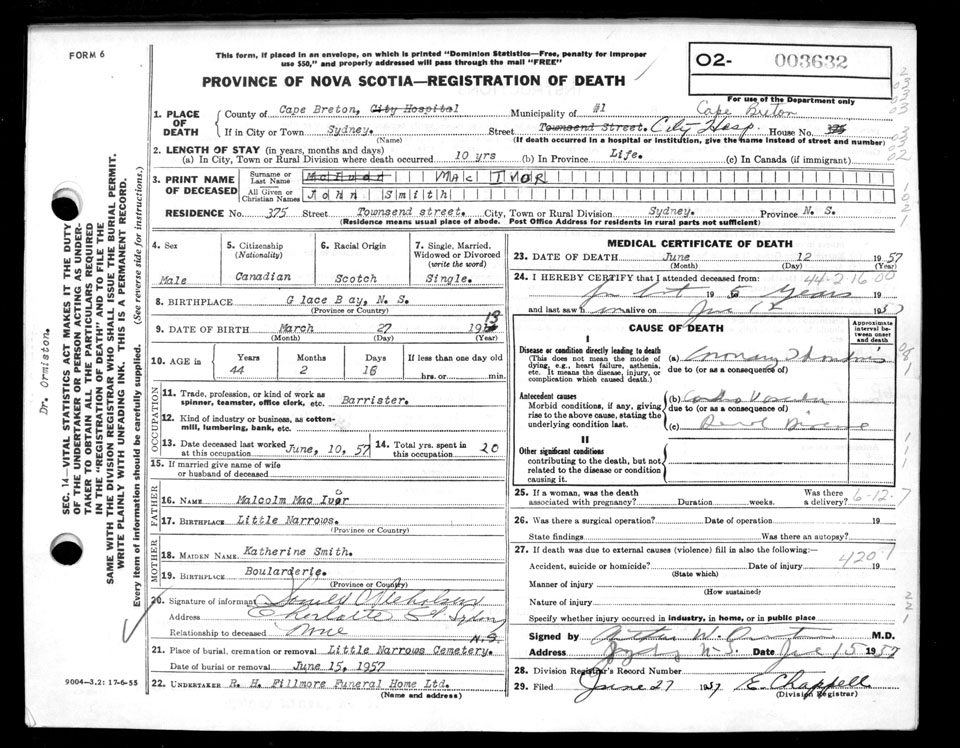 FORM 6
This form, if placed in an envelope, on which is printed "Dominion Statistics—Free, penalty for improper
use $50," and properly addressed will pass through the mail "FREE"
PROVINCE OF NOVA SCOTIA—REGISTRATION OF DEATH
O2- 003632
For use of the Department only
1. PLACE OF DEATH
County of Cape Breton, City Hospital Municipality of #1 Cape Breton
If in City or Town Sydney. Street Townsend Street. City Hosp. House No.
(Name) (If death occurred in a hospital or institution, give the name instead of street and number)
2. LENGTH OF STAY (in years, months and days)
(a) In City, Town or Rural Division where death occurred 10 yrs (b) In Province Life. (c) In Canada (if immigrant)
3. PRINT NAME OF DECEASED
Surname or Last Name MAC IVOR
All Given or Christian Names John Smith
RESIDENCE No. 375 Street Townsend street. City, Town or Rural Division Sydney. Province N. S.
(Residence means usual place of abode. Post Office Address for residents in rural parts not sufficient)
4. Sex Male
5. Citizenship (Nationality) Canadian
6. Racial Origin Scotch
7. Single, Married, Widowed or Divorced (write the word) Single.
8. BIRTHPLACE Glace Bay, N. S.
(Province or Country)
9. DATE OF BIRTH March 27 1913
(Month) (Day) (Year)
10. AGE in Years Months Days If less than one day old
44 2 16 hrs. or min.
OCCUPATION
11. Trade, profession, or kind of work as spinner, teamster, office clerk, etc. Barrister.
12. Kind of industry or business, as cotton-mill, lumbering, bank, etc.
13. Date deceased last worked at this occupation June, 10, 57
14. Total yrs. spent in this occupation 20
15. If married give name of wife or husband of deceased
FATHER
16. NAME Malcolm Mac Ivor
17. BIRTHPLACE Little Narrows.
(Province or Country)
MOTHER
18. MAIDEN NAME Katherine Smith.
19. BIRTHPLACE Boularderie.
(Province or Country)
20. Signature of informant
Address Charlotte St Sydney N.S.
Relationship to deceased None
21. Place of burial, cremation or removal Little Narrows Cemetery.
Date of burial or removal June 15, 1957
22. UNDERTAKER R. H. Fillmore Funeral Home Ltd.
(Name and address)
9004—3.2: 17-6-55
MEDICAL CERTIFICATE OF DEATH
23. DATE OF DEATH June 12 1957
(Month) (Day) (Year)
44-2 16 00
24. I HEREBY CERTIFY that I attended deceased from:
for last 19 5 years 19
and last saw h im alive on June 12 1957
CAUSE OF DEATH
Approximate interval between onset and death
I
Disease or condition directly leading to death
(This does not mean the mode of dying, e.g., heart failure, asthenia, etc. It means the disease, injury, or complication which caused death.)
(a) Coronary Thrombosis
due to (or as a consequence of)
Antecedent causes
Morbid conditions, if any, giving rise to the above cause, stating the underlying condition last.
(b) Cardio Vascular
due to (or as a consequence of)
(c) Renal Disease
II
Other significant conditions
contributing to the death, but not related to the disease or condition causing it.
25. If a woman, was the death associated with pregnancy? Duration weeks. Was there a delivery?
6-12-7
26. Was there a surgical operation? Date of operation 19
State findings Was there an autopsy?
27. If death was due to external causes (violence) fill in also the following:—
4201
Accident, suicide or homicide? Date of injury 19
(State which)
Manner of injury
(How sustained)
Nature of injury
Specify whether injury occurred in industry, in home, or in public place
Signed by Arthur W. M.D.
Address Sydney N.S. Date June 15 1957
28. Division Registrar's Record Number
29. Filed June 27 1957 E. Chappell
(Division Registrar)
Dr. Ormiston.
SEC. 14—VITAL STATISTICS ACT MAKES IT THE DUTY
OF THE UNDERTAKER OR PERSON ACTING AS UNDER-
TAKER TO OBTAIN ALL THE PARTICULARS REQUIRED
IN THE "REGISTRATION OF DEATH" AND TO FILE THE
SAME WITH THE DIVISION REGISTRAR WHO SHALL ISSUE THE BURIAL PERMIT.
WRITE PLAINLY WITH UNFADING INK. THIS IS A PERMANENT RECORD.
Every item of information should be carefully supplied. (See reverse side for instructions.)